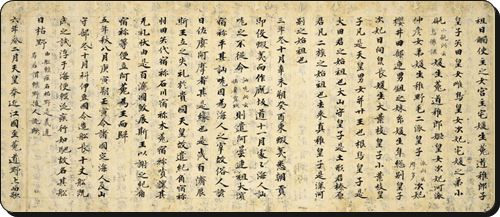 祖日觸使主之女宮主宅媛生菟道稚郎子
皇子矢田皇女雌鳥皇女次妃宅媛之弟小
甂媛生菟道稚郎姬皇女次妃河派
仲彥女弟媛生稚野毛二派皇子次妃
櫻井田部連男鉏之妹糸媛生隼總別皇子
次妃日向泉長媛生大葉枝皇子小葉枝皇
子凡是天皇男女幷廿王也根鳥皇子是
大田君之始祖也大山守皇子是土形君榛原
君凡二族之始祖也去來真稚皇子是深河
別之始祖也
三年冬十月辛未朔癸酉東蝦夷悉朝貢
即役蝦夷而作廐坂道十一月處々海人訕
哤之不從命則遣阿曇連祖大濱
宿祢平其訕哤因爲海人之宰故俗人諺
曰佐麼阿摩者其是緣也是歲百濟辰
斯王立之失礼於貴國天皇故遣紀角宿祢
羽田矢代宿祢石川宿祢木菟宿祢嘖讓其
无礼狀由是百濟國殺辰斯王以謝之紀角
宿祢等便立阿花爲王而歸
五年秋八月庚寅朔壬寅令諸國定海人及山
守部冬十月科伊豆國令造船長十丈船既
成之試浮于海便輕泛疾行如馳故名其船
曰枯野
六年春二月天皇幸近江國至菟道野上而歌